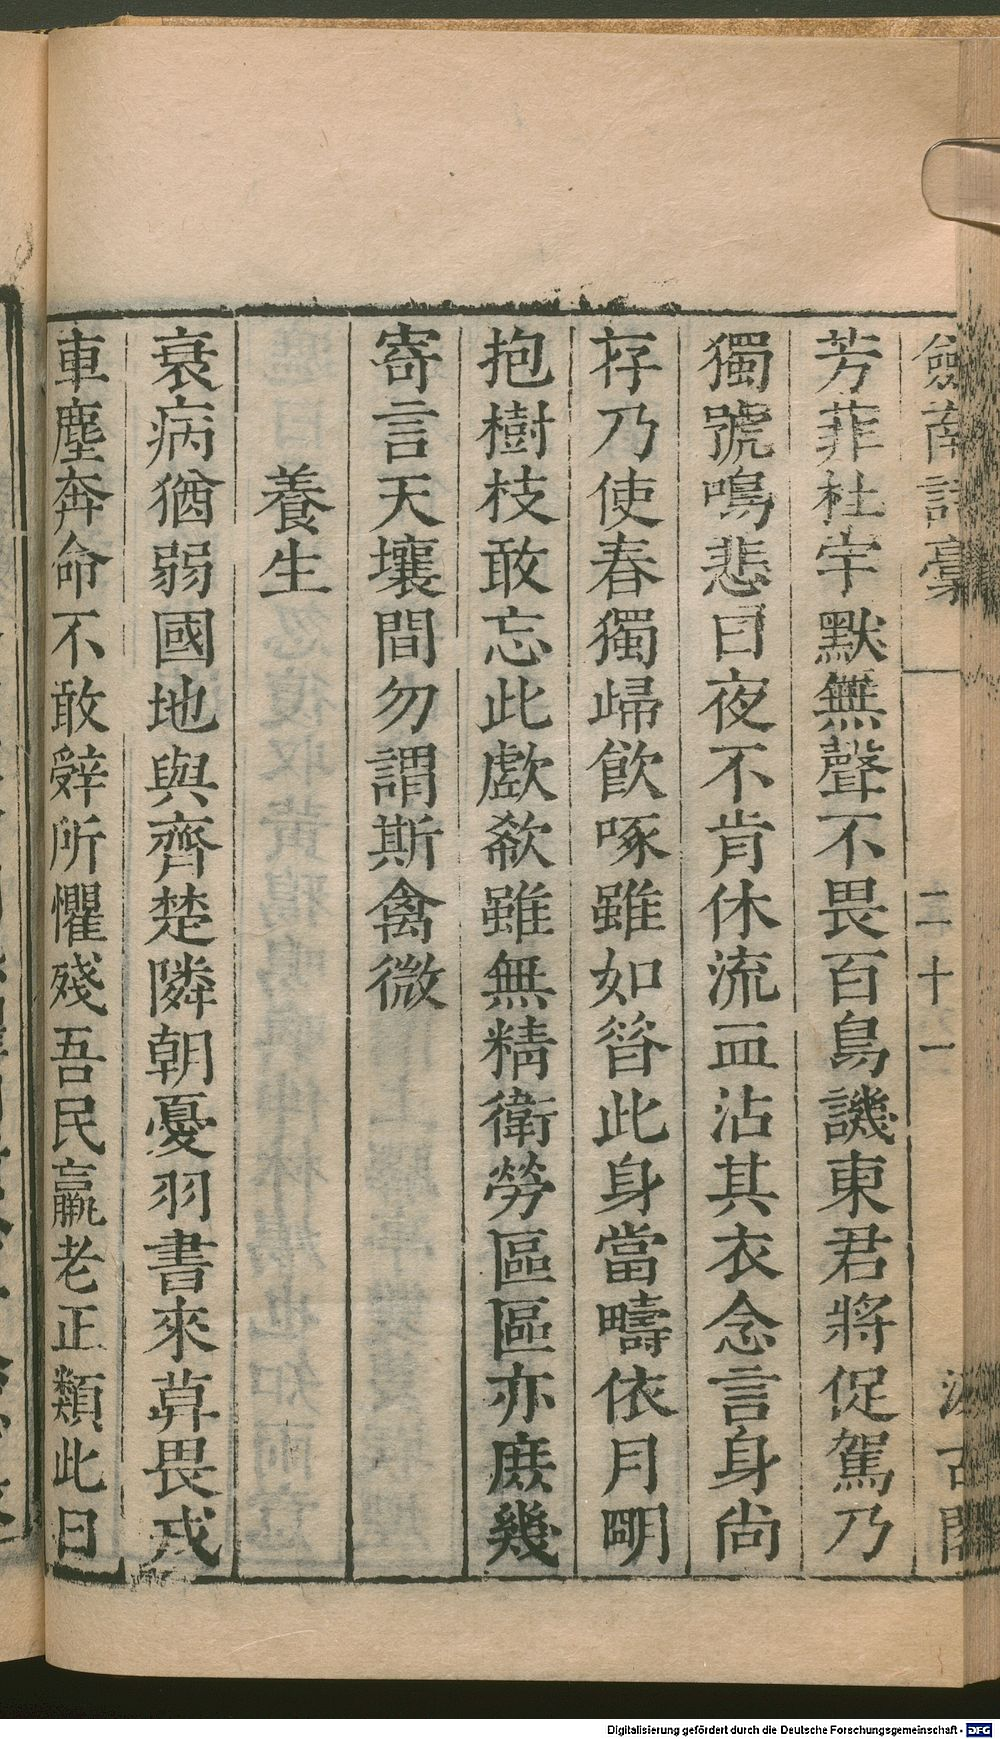 劍南詩稾
二十
汲古閣
芳菲杜宇默無聲不畏百鳥譏東君將促駕乃
獨號鳴悲日夜不肯休流血沾其衣念言身尚
存乃使春獨歸飲啄雖如昝此身當疇依月明
抱樹枝敢忘此歔欷雖無精衛勞區區亦庶幾
寄言天壤間勿謂斯禽微
養生
衰病猶弱國地與齊楚隣朝憂羽書來莫畏戎
車塵奔命不敢辤所懼殘吾民羸老正類此日
Digitalisierung gefördert durch die Deutsche Forschungsgemeinschaft - DFG